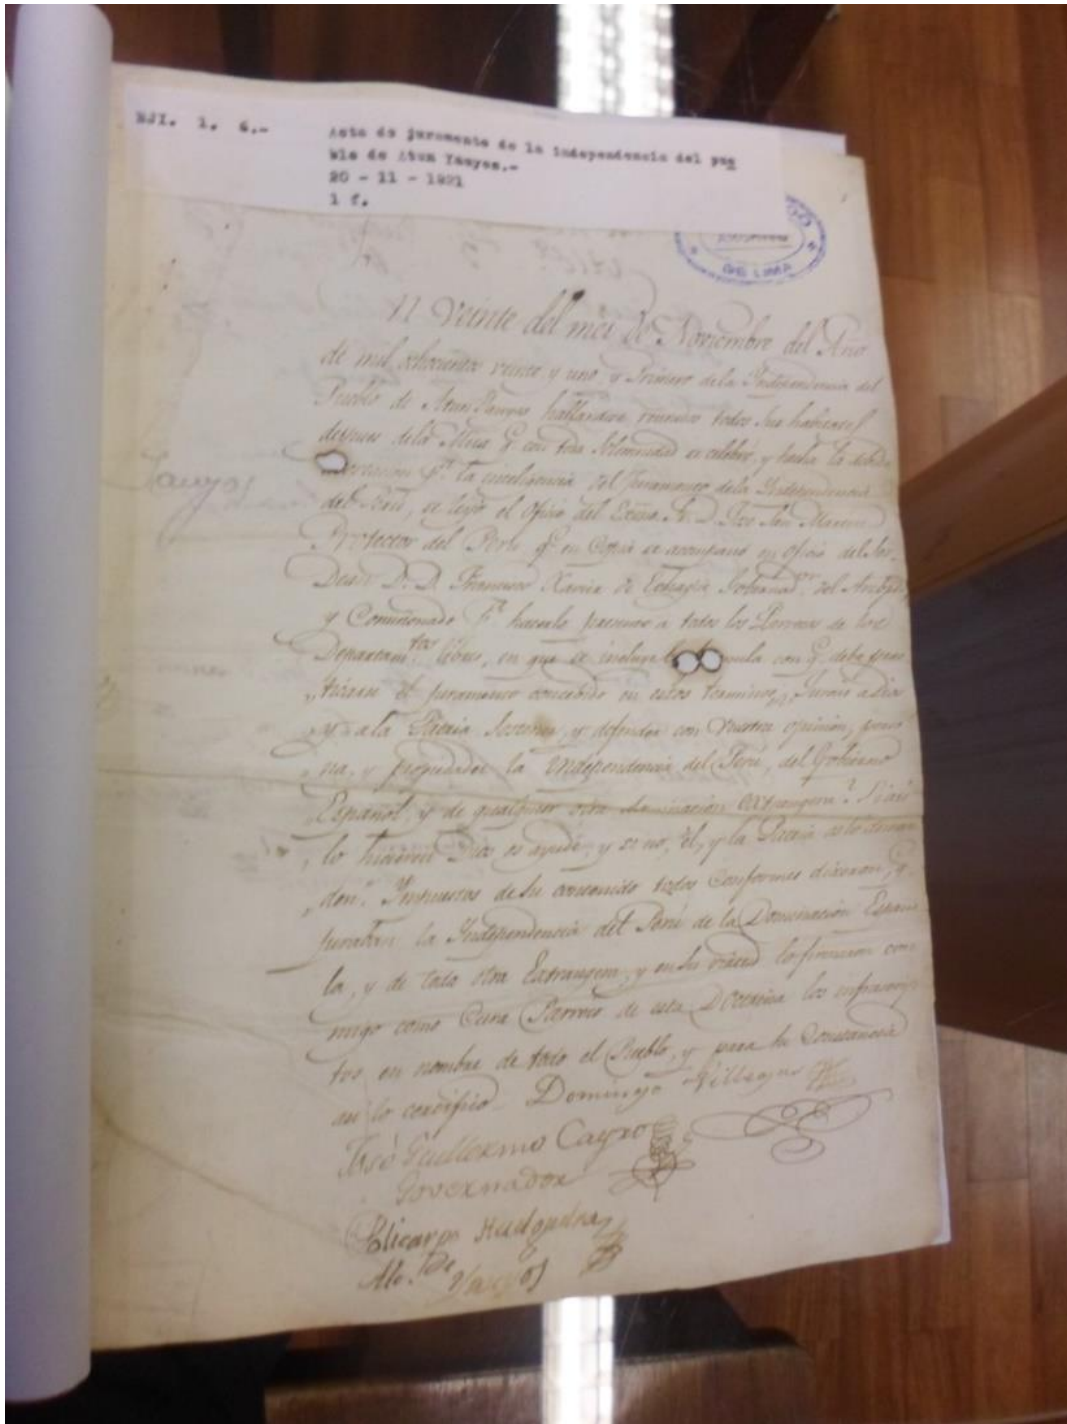 EJI. 1. 6.- Acta de juramento de la independencia del pue
blo de Atun Yauyos.-
20 - 11 - 1821
1 f.
DE LIMA
Yauyos
n Veinte del mes de Noviembre del Año
de mil ochocientos veinte y uno, y Primero dela Independencia del
Pueblo de Atun Yauyos hallandose reunidos todos sus habitantes
despues dela Misa q.e con toda Solemnidad se celebró, y hecha la debida
p.a la inteligencia del Juramento dela Independencia
del Perú, se leyó el Oficio del Exmo. S. D. José San Martin
Protector del Perú q.e en Copia se acompaña en oficio del Señ.
Dean D.D. Francisco Xavier de Echagüe Gobernad.or del Arzôpdo
y Comisionado p.a hacerlo presente a todos los Parrocos de los
Departam.tos libres, en que se incluye la con q.e debe prac
ticarse el juramento concebido en estos terminos, Jurais a Dios
y a la Patria sostener, y defender con vuestra opinion, perso
na, y propiedades la Independencia del Perú, del Gobierno
Español, y de qualquier otra dominacion extrangera? Si asi
lo hiciereis Dios os ayude, y si no, él, y la Patria os lo deman
den". Impuestos de su contenido todos Conformes dixeron, q.e
juraban la Independencia del Perú de la Dominacion Españo
la, y de toda otra Extrangera, y en su virtud lo firmaron con
migo como Cura Parroco de esta Doctrina los infrascrip
tos, en nombre de todo el Pueblo, y para su Constancia
asi lo certifico. Domingo Villegas
José Guillermo Cayro
Governador
Policarpo
Alc.de de Yauyos